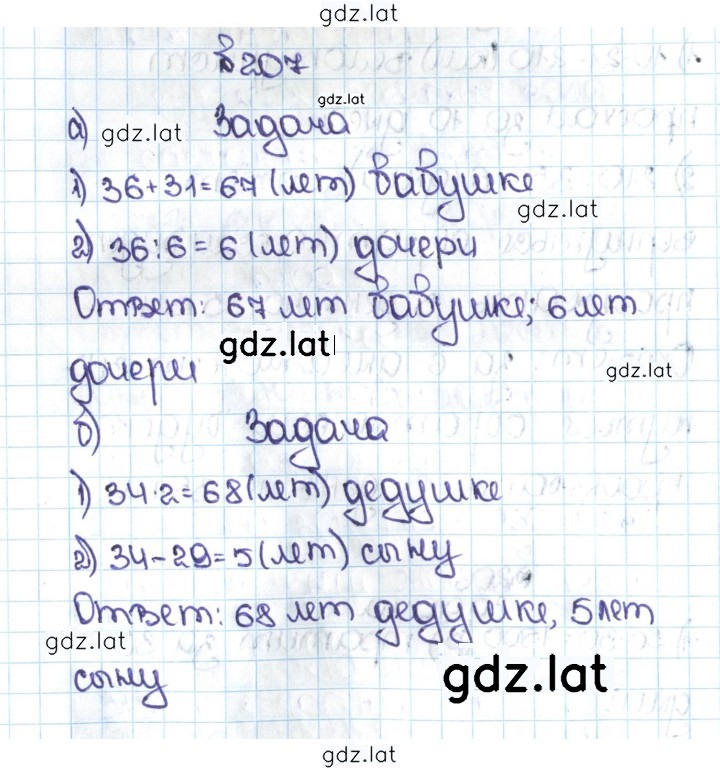 gdz.lat
№207
gdz.lat
а) gdz.lat Задача
1) 36+31=67 (лет) бабушке
gdz.lat
2) 36:6=6 (лет) дочери
Ответ: 67 лет бабушке; 6 лет
gdz.lat
дочери gdz.lat
б) Задача
1) 34·2=68 (лет) дедушке
2) 34-29=5 (лет) сыну
Ответ: 68 лет дедушке, 5 лет
gdz.lat
сыну gdz.lat
gdz.lat